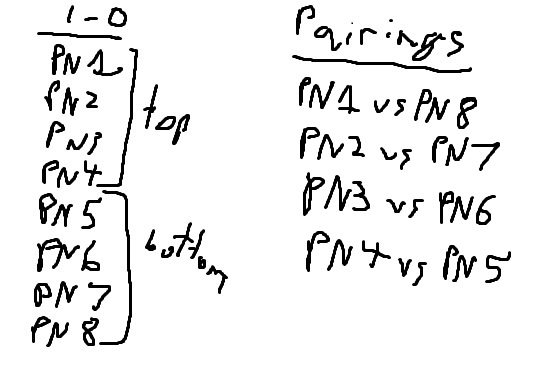 1-0
PN1
PN2
PN3
PN4
top
PN5
PN6
PN7
PN8
bottom
Pairings
PN1 vs PN8
PN2 vs PN7
PN3 vs PN6
PN4 vs PN5